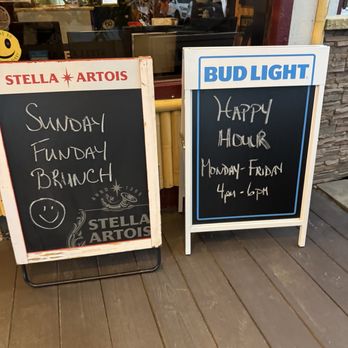 STELLA ARTOIS
SUNDAY
FUNDAY
BRUNCH
STELLA
ARTOIS
BUD LIGHT
HAPPY
HOUR
MONDAY-FRIDAY
4pm-6pm